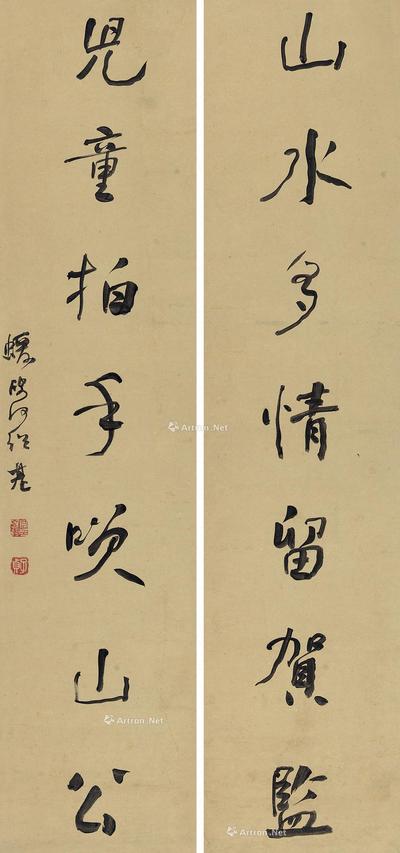 山水多情留賀監
兒童拍手唉山公
蝯叟何紹基
Artron.Net
Artron.Net
Artron.Net
Artron.Net